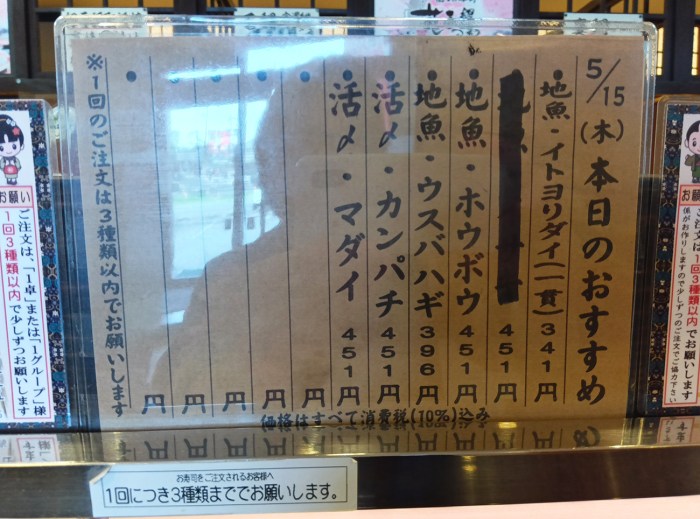 5/15(木)本日のおすすめ
地魚・イトヨリダイ(一貫)341円
451円
地魚・ホウボウ451円
地魚・ウスバハギ396円
活〆・カンパチ451円
活〆・マダイ451円
円
円
円
円
円
※1回のご注文は3種類以内でお願いします
価格はすべて消費税(10%)込み
お願い
ご注文は、「1卓」または「1グループ」様
1回3種類以内で少しずつお願いします
お寿司をご注文されるお客様へ
1回につき3種類まででお願いします。